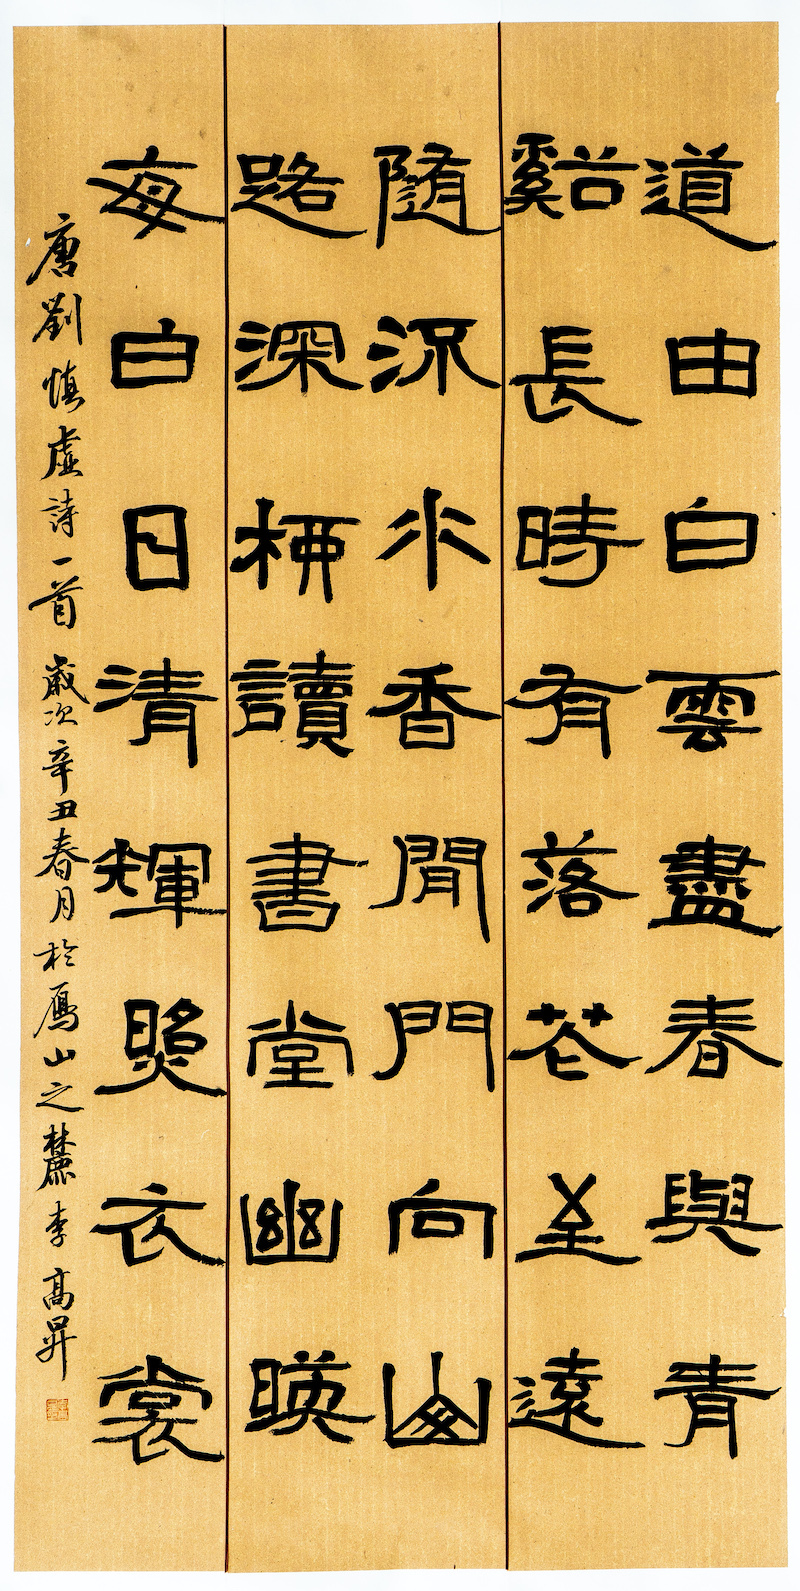 道由白雲盡春與青
谿長時有落花至遠
隨流水香閒門向山
路深柳讀書堂幽暎
每白日清輝照衣裳
唐劉慎虛詩一首 歲次辛丑春月於鳫山之麓李高昇